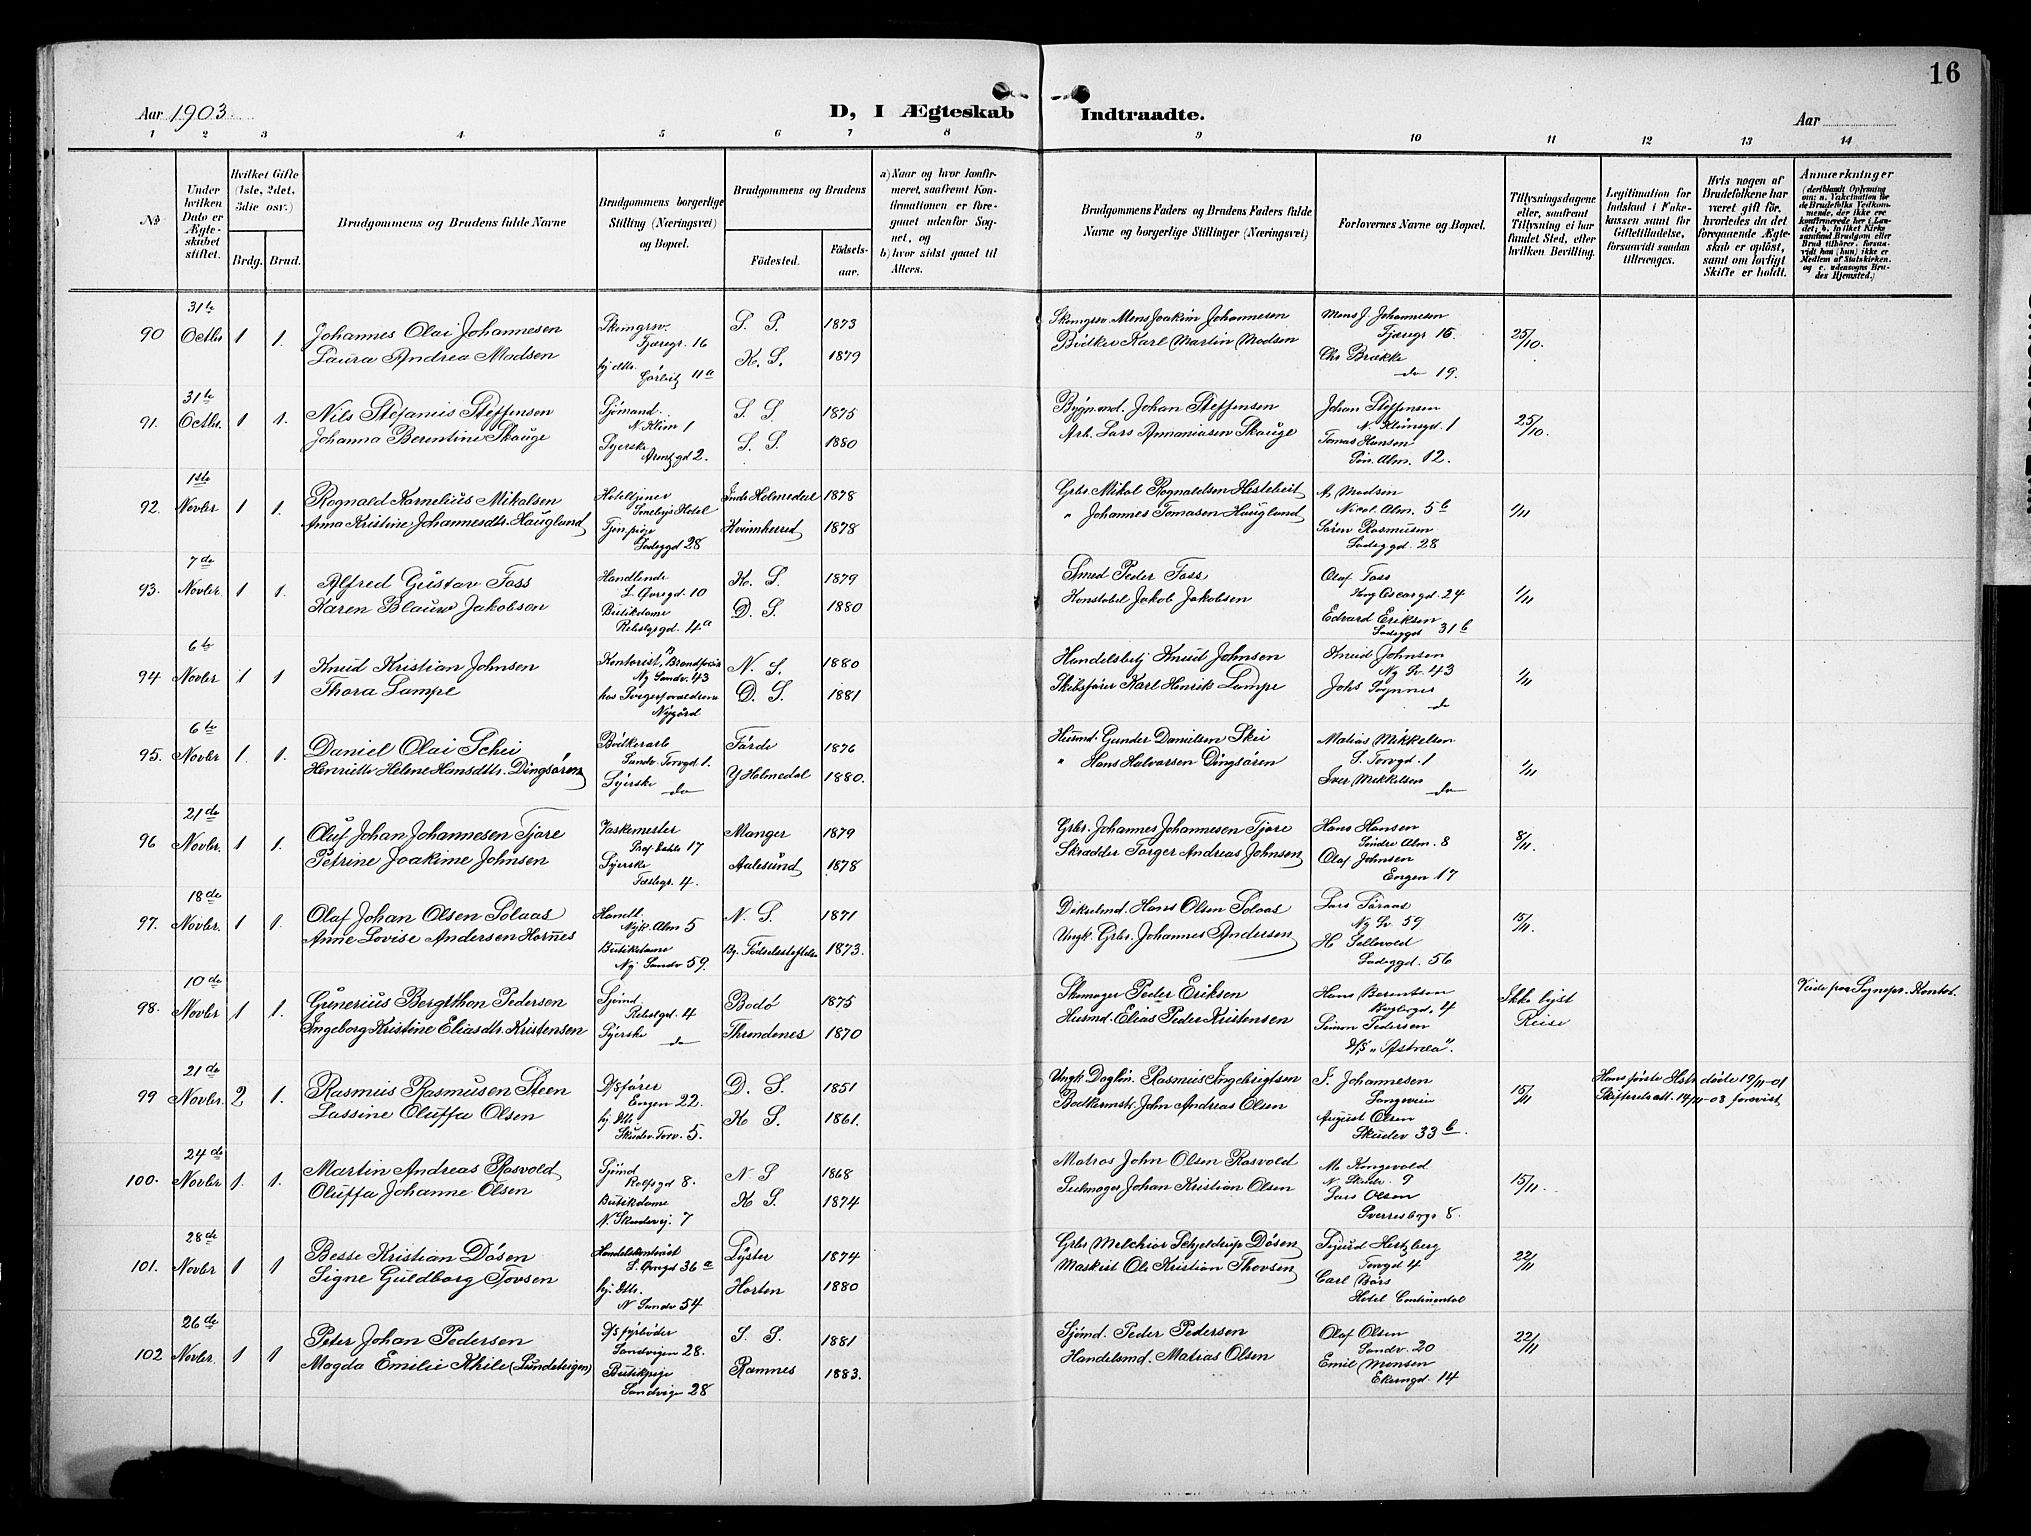 16
Aar 1903.
D, I Ægteskab Indtraadte.
Aar
1 2 3 4 5 6 7 8 9 10 11 12 13 14
No.
Under hvilken Dato er Ægteskabet stiftet.
Hvilket Gifte (1ste, 2det, 3die osv.)
Brdg. Brud.
Brudgommens og Brudens fulde Navne
Brudgommens borgerlige Stilling (Næringsvei) og Bopæl.
Brudgommens og Brudens
Födested.
Födselsaar.
a) Naar og hvor konfirmeret, saafremt Konfirmationen er foregaaet udenfor Sognet, og
b) hvor sidst gaaet til Alters.
Brudgommens Faders og Brudens Faders fulde Navne og borgerlige Stillinger (Næringsvei)
Forlovernes Navne og Bopæl.
Tillysningsdagene eller, saafremt Tillysning ei har fundet Sted, efter hvilken Bevilling.
Legitimation for Indskud i Enkekassen samt for Giftetilladelse, forsaavidt saadan tiltrænges.
Hvis nogen af Brudefolkene har været gift för, hvorledes da det foregaaende Ægteskab er oplöst, samt om lovligt Skifte er holdt.
Anmærkninger
90 31te Octbr 1 1. Johannes Olai Johannesen
Laura Andrea Madsen
Tjæregr. 16
S. P. 1873
K. S. 1879
Mons Joakim Johannesen
Bödker Karl Martin Madsen
Mons J. Johannesen
Tjæregr 16.
Chr Brække
do 19.
25/10.
91. 31te Octbr. 1 1. Nils Stefanius Steffensen
Johanna Berentine Skauge
Sjömand.
N. Klim 1
Syerske
S. S 1875
S. S 1880
Johan Steffensen
Arb. Lars Annaniasen Skauge
Johan Steffensen
Tomas Hansen
Alm. 12.
25/10.
92. 1ste Novbr 1 1. Rognald Kornelius Mikalsen
Anna Kristine Johannesdtr. Hauglund
Hoteltjener
Hotel
Ladeggd 28
Indr Holmedal 1878
Kvinnherred 1878
Grbr. Mikal Rognaldsen Hestebeit
" Johannes Tomasen Hauglund
A. Madsen
Nicol. Alm. 5 b
Sören Rasmusen
Ladeggd. 28
1/11
93. 7de Novbr. 1 1. Alfred Gustav Foss
Karen Blauw Jakobsen
Handlende
Övregd. 10
Butikdame
Rebslgrgd. 4a
K. S. 1879
D. S. 1880
Smed Peder Foss
Konstabel Jakob Jakobsen
Olaf Foss
Kong Oscargd. 24
Edvard Eriksen
Ladeggd 31 b
1/11
94 6te Novbr 1 1 Knud Kristian Johnsen
Thora Lampe
Kontorist
Ny Sandv. 43
hos Svigerforældrene
Nygård
N. S. 1880
D. S. 1881
Knud Johnsen
Skibsförer Karl Henrik Lampe
Knud Johnsen
Ny Sv. 43
Johs
do
1/11
95. 6te Novbr 1. 1. Daniel Olai Schei
Henriette Helene Hansdtr. Dingsören
Bödkerarb
Sandv. Torvgd 1.
Syerske do
Förde 1876
Y Holmedal 1880.
Husmd. Gunder Danielsen Skei
" Hans Halvorsen Dingsören
Matias Mikkelsen
S. Torvgd. 1
Iver Mikkelsen
do
1/11
96 21de Novbr. 1 1. Oluf Johan Johannesen Tjore
Petrine Joakime Johnsen
Vaskemester
17
Syerske
4.
Manger 1879
Aalesund 1878
Grbr. Johannes Johannesen Tjore
Skrædder Torger Andreas Johnsen
Hans Hansen
Söndre Alm. 8
Olaf Johnsen
Engen 17
8/11
97. 18de Novbr. 1 1. Olaf Johan Olsen Solaas
Anne Lovise Andersen Hornes
Handl.
Nyk. Alm 5
Butikdame
Ny Sandv 59.
N. S. 1871
Bg. Födselsstiftelse 1873.
Hans Olsen Solaas
Ungk. Grbr. Johannes Andersen
Lars
Ny Sv 59
H. Sellevold
Ladeggd. 56
15/11.
98. 10de Novbr 1 1. Gunerius Bergithon Pedersen
Ingeborg Kristine Eliasdtr. Kristensen
Sjömd
Rebslgd. 4
Syerske do
Bodö 1875
Throndenes 1870
Skomager Peder Eriksen
Husmd. Elias Peder Kristensen
Hans Berentsen
4
Simon Pedersen
D/S "Astræa".
Ikke lyst
Reise
Viede paa Sognepr. Kontor.
99 21de Novbr. 2 1. Rasmus Rasmusen Steen
Lassine Oluffa Olsen
D/S förer
Engen 22.
hj. dtr.
Skudev. Torv. 5.
D. S. 1851
K S. 1861.
Ungk Daglön. Rasmus Ingebrigtsen
Bödkermstr. John Andreas Olsen
J. Johannesen
Langveien
August Olsen
Skudev 33 b.
15/11
Hans förste Hstr döde 19/11-01
Skifteretatt. 14/11-03 forevist
100. 24de Novbr 1. 1. Martin Andreas Rosvold
Oluffa Johanne Olsen
Sjömd
Rolfsgd 8.
Butikdame
N. Skudevj. 7
N. S 1868
K S. 1874
Matros John Olsen Rosvold
Seilmager Johan Kristian Olsen
M. Kongevold
N. Skudev. 9
Lars Olsen
Sverresborgr 8.
15/11.
101. 28de Novbr 1 1 Besse Kristian Dösen
Signe Guldborg Tovsen
Handelskontorist
S. Övregd 36 a
hj. dtr.
N Sandv 54
Lyster 1874
Horten 1880
Grbr Melchior Schjeldrup Dösen
Maskist Ole Kristian Thovsen
Sigurd Hertzberg
Torvgd 4
Carl Börs
Hotel Continental
22/11
102 26de Novbr. 1 1 Peter Johan Pedersen
Magda Emilie Khile (Lundeteigen)
D/S fyrböder
Sandvigen 28.
Butikpige
Sandvige 28
S. S. 1881
Ramnes 1883.
Sjömd. Peder Pedersen
Handelsmd. Matias Olsen
Olaf Olsen
Sandv. 20
Emil Monsen
Ekrengd. 14
22/11